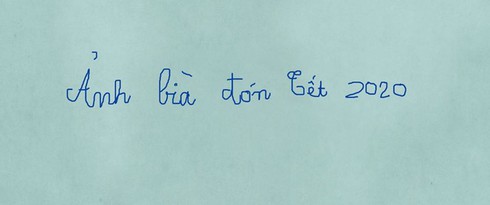 Ảnh bìa đón Tết 2020